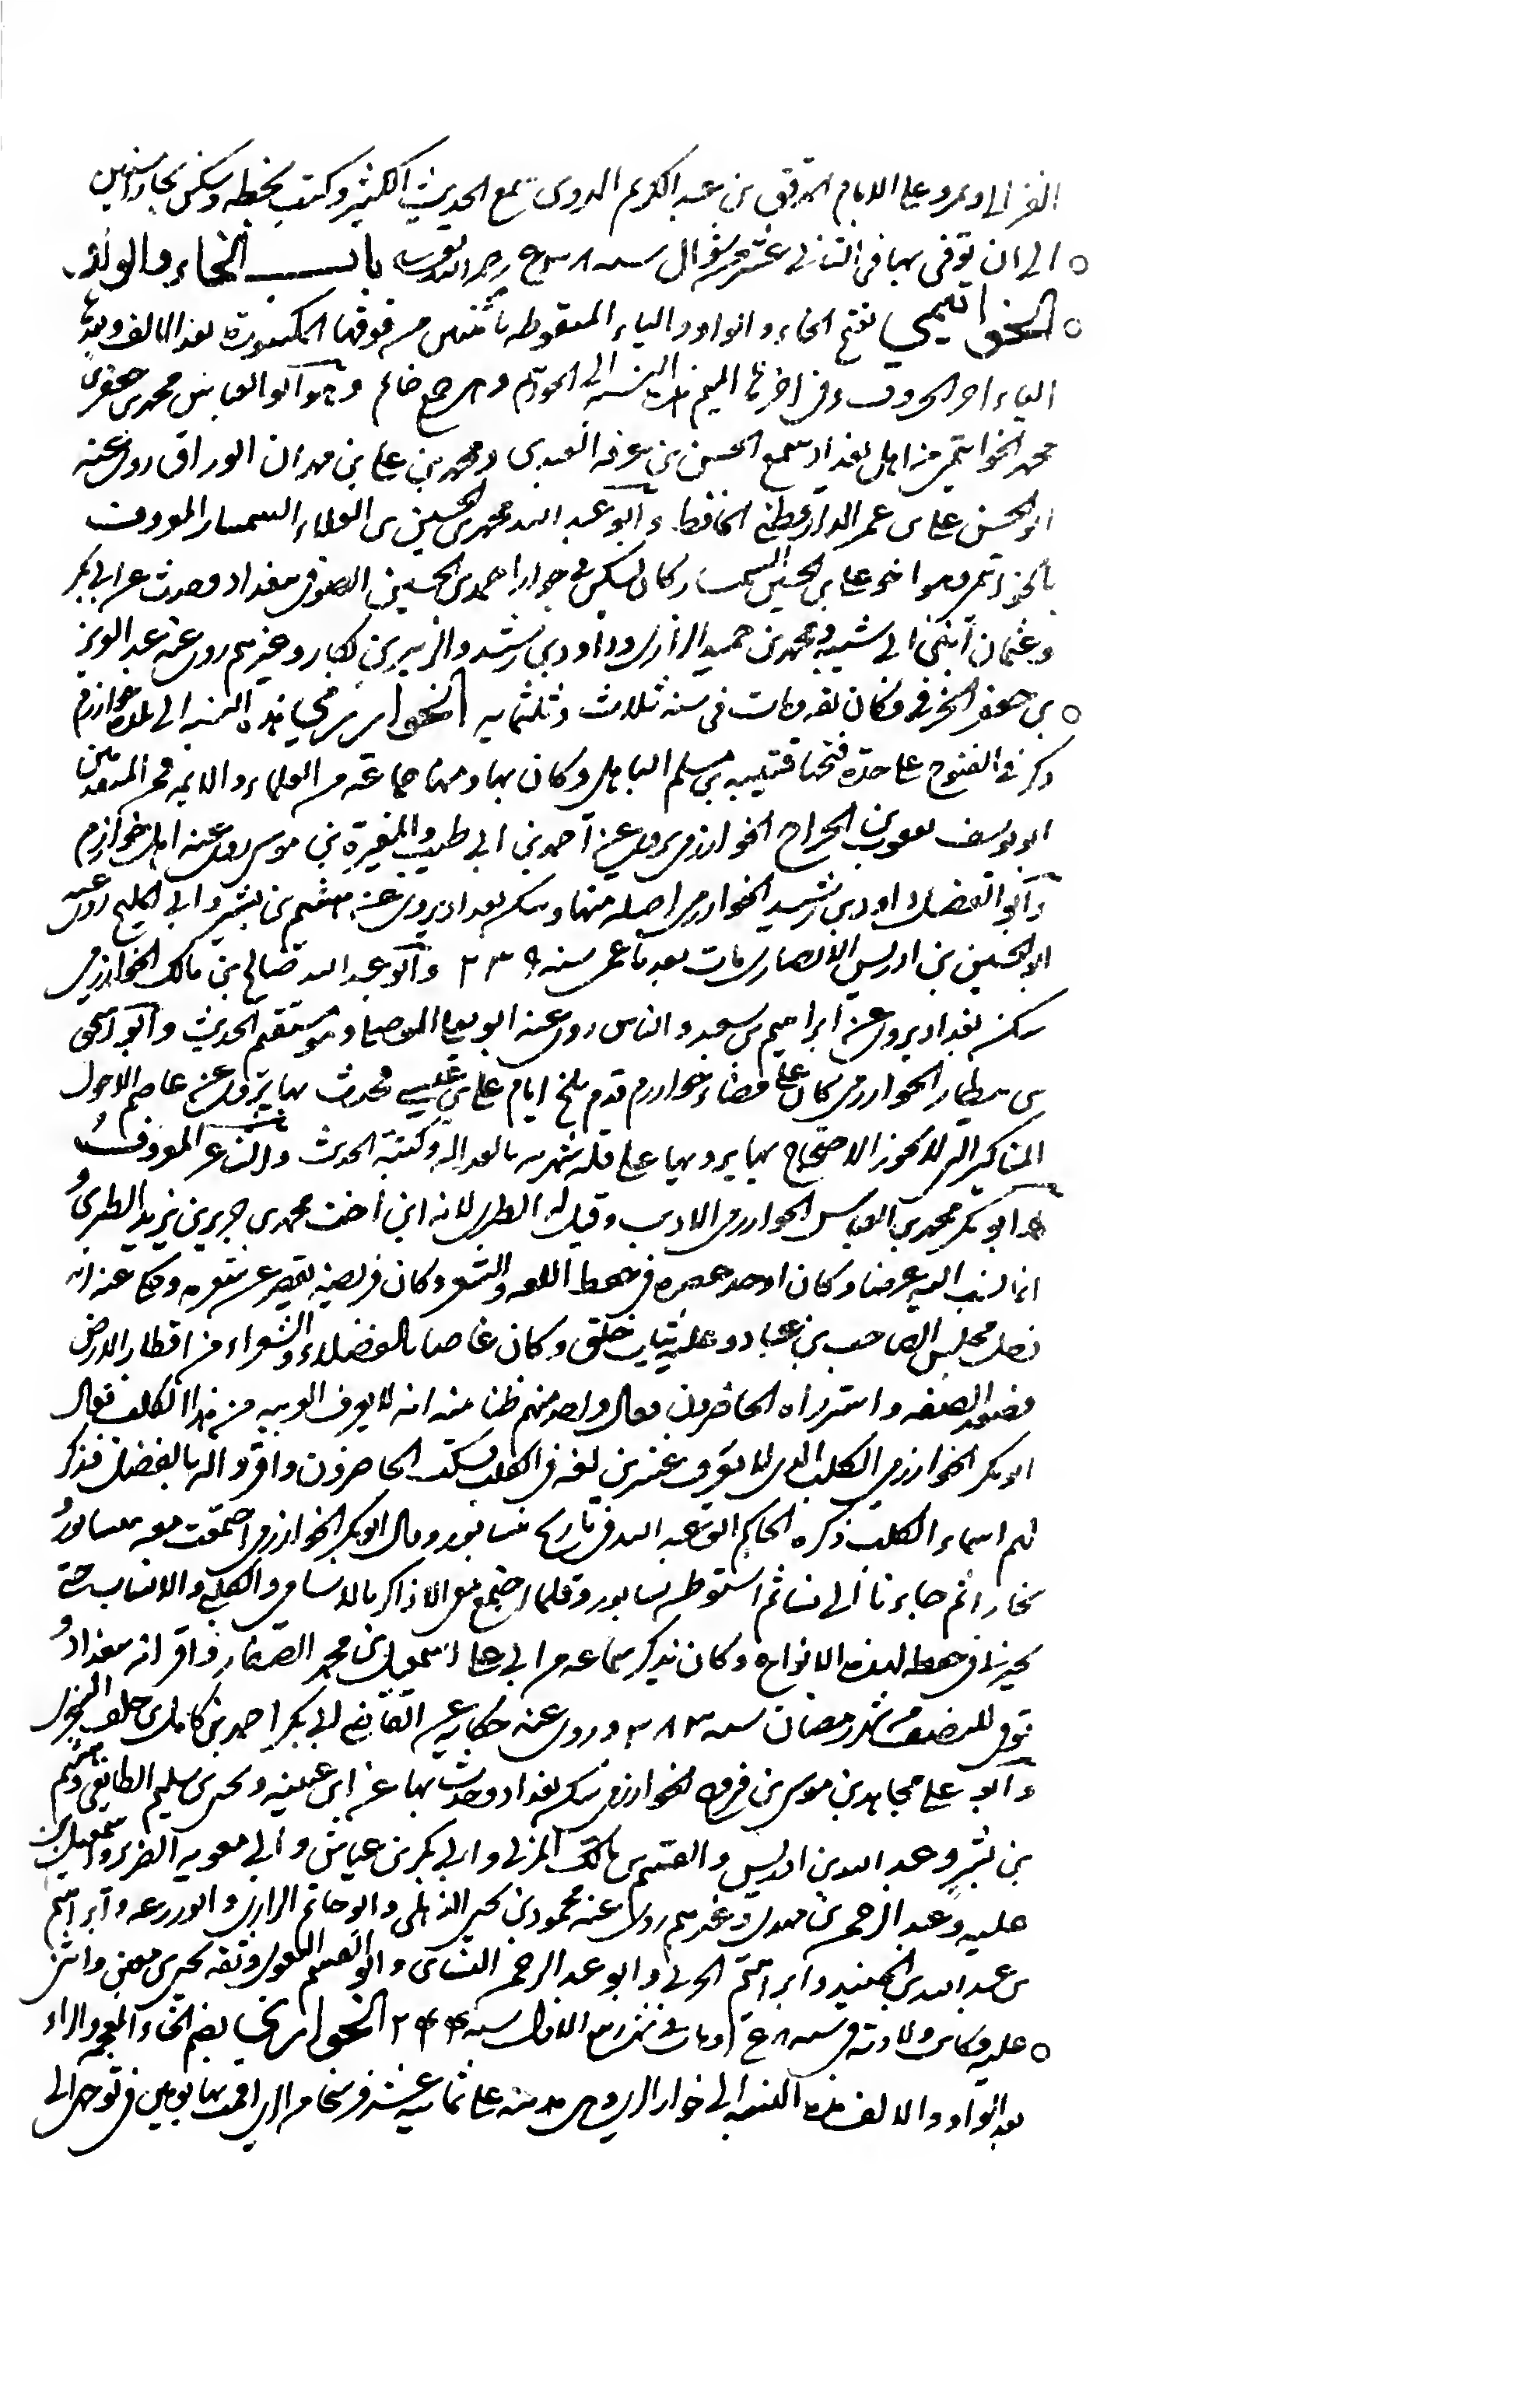 الغزالى وبمرو على الامام الموفق بن عبد الكريم الهروى سمع الحديث الكثير وكتب بخطه وسكن بخارا سنين
الى ان توفى بها فى الثانى عشر من شوال سنه رحمه الله باب الخاء والواو
الخواتيمي بفتح الخاء والواو والتاء المنقوطه باثنتين من فوقها المكسورة بعد الالف وبعدها
الياء اخر الحروف وفى اخرها الميم هذه النسبه الى الخواتيم وهى جمع خاتم وهو ابو العباس محمد بن جعفر بن
محمد الخواتيمى من اهل بغداد سمع الحسن بن عرفه العبدى ومحمد بن على بن مهران الوراق روى عنه
ابو الحسن على بن عمر الدارقطنى الحافظ وابو عبد الله محمد بن الحسين بن العلاء السمسار المعروف
بالخواتيمى وهو اخو على بن الحسين السمسار كان يسكن فى جوار احمد بن الحسين الصوفى ببغداد وحدث عن ابى بكر
وعثمان ابنى ابى شيبه ومحمد بن حميد الرازى وداود بن رشيد والزبير بن بكار وغيرهم روى عنه عبد العزيز
بن جعفر الخرقى وكان ثقه ومات فى سنه ثلاث وثلثمايه الخوارزمي هذه النسبه الى بلدة خوارزم
ذكر فى الفتوح على حدة فتحها قتيبه بن مسلم الباهلى وكان بها ومنها جماعة من العلماء والايمه فمن المتقدمين
ابو يوسف يعقوب بن الجراح الخوارزمى يروى عن احمد بن ابى طيبه والمغيرة بن موسى روى عنه اهل خوارزم
وابو الفضل داود بن رشيد الخوارزمى اصله منها وسكن بغداد يروى عن هشيم بن بشير وابى المليح روى عنه
ابو الحسين بن ادريس الانصارى مات بعد ما عمى سنه ٢٣٩ وابو عبد الله صالح بن مالك الخوارزمى
سكن بغداد يروى عن ابراهيم بن سعد والناس روى عنه ابو يعلى الموصلى وهو مستقيم الحديث وابو اسحق
بن بيطار الخوارزمى كان على قضاء خوارزم قدم بلخ ايام على بن عيسى فحدث بها يروى عن عاصم الاحول
المناكير التى لا يجوز الاحتجاج بها يرويها على قله شهرته بالعدالة وكتبة الحديث والشاعر المعروف
ابو بكر محمد بن العباس الخوارزمى الاديب وقيل له الطبرى لانه ابن اخت محمد بن جرير بن يزيد الطبرى
انما نسب اليه عرضا وكان اوحد عصره فى حفظ اللغه والشعر وكان يقصر عن شعره وحكى عنه انه
دخل مجلس الصاحب بن عباد وعليه ثياب خلق وكان غاصا بالفضلاء والشعراء من اقطار الارض
فصعد الصفه واستزراه الحاضرون فقال واحد منهم ظنا منه انه لا يعرف العربيه من هذا الكلب فقال
ابو بكر الخوارزمى الكلب الذى لا يعرف عشرين لغه فى الكلب فسكت الحاضرون واقروا له بالفضل فذكر
لهم اسماء الكلب ذكره الحاكم ابو عبد الله فى تاريخ نيسابور وقال ابو بكر الخوارزمى اجتمعت معه بنيسابور
بخارا ثم جاءنا الى نسا ثم استوطن نيسابور وقلما اجتمع معى الا ذاكر بالاسامى والكنى والانساب حتى
يحيرنى فى حفظه لهذه الانواع وكان يذكر سماعه من ابى على اسمعيل بن محمد الصفار واقرانه ببغداد
توفى للنصف من شهر رمضان سنه ٣٨٣ وروى عنه حكايه عن القاضى ابى بكر احمد بن كامل بن خلف الشجرى
وابو على مجاهد بن موسى بن فروخ الخوارزمى سكن بغداد وحدث بها عن ابن عيينه ويحيى بن سليم الطايفى وهشيم
بن بشير وعبد الله بن ادريس والقسم بن مالك المزنى وابى بكر بن عياش وابى معويه الضرير واسمعيل بن
عليه وعبد الرحمن بن مهدى وغيرهم روى عنه محمد بن يحيى الذهلى وابو حاتم الرازى وابو زرعه وابراهيم
بن عبد الله بن الجنيد وابراهيم الحربى وابو عبد الرحمن النسائى وابو القسم البغوى وثقه يحيى بن معين واثنى
عليه وكانت ولادته فى سنه ومات فى شهر ربيع الاول سنه ٢٤٤ الخواري بضم الخاء المعجمه والراء
بعد الواو والالف هذه النسبه الى خوار الرى وهى مدينه على ثمانيه عشر فرسخا من الرى اقمت بها يومين فى توجهى الى